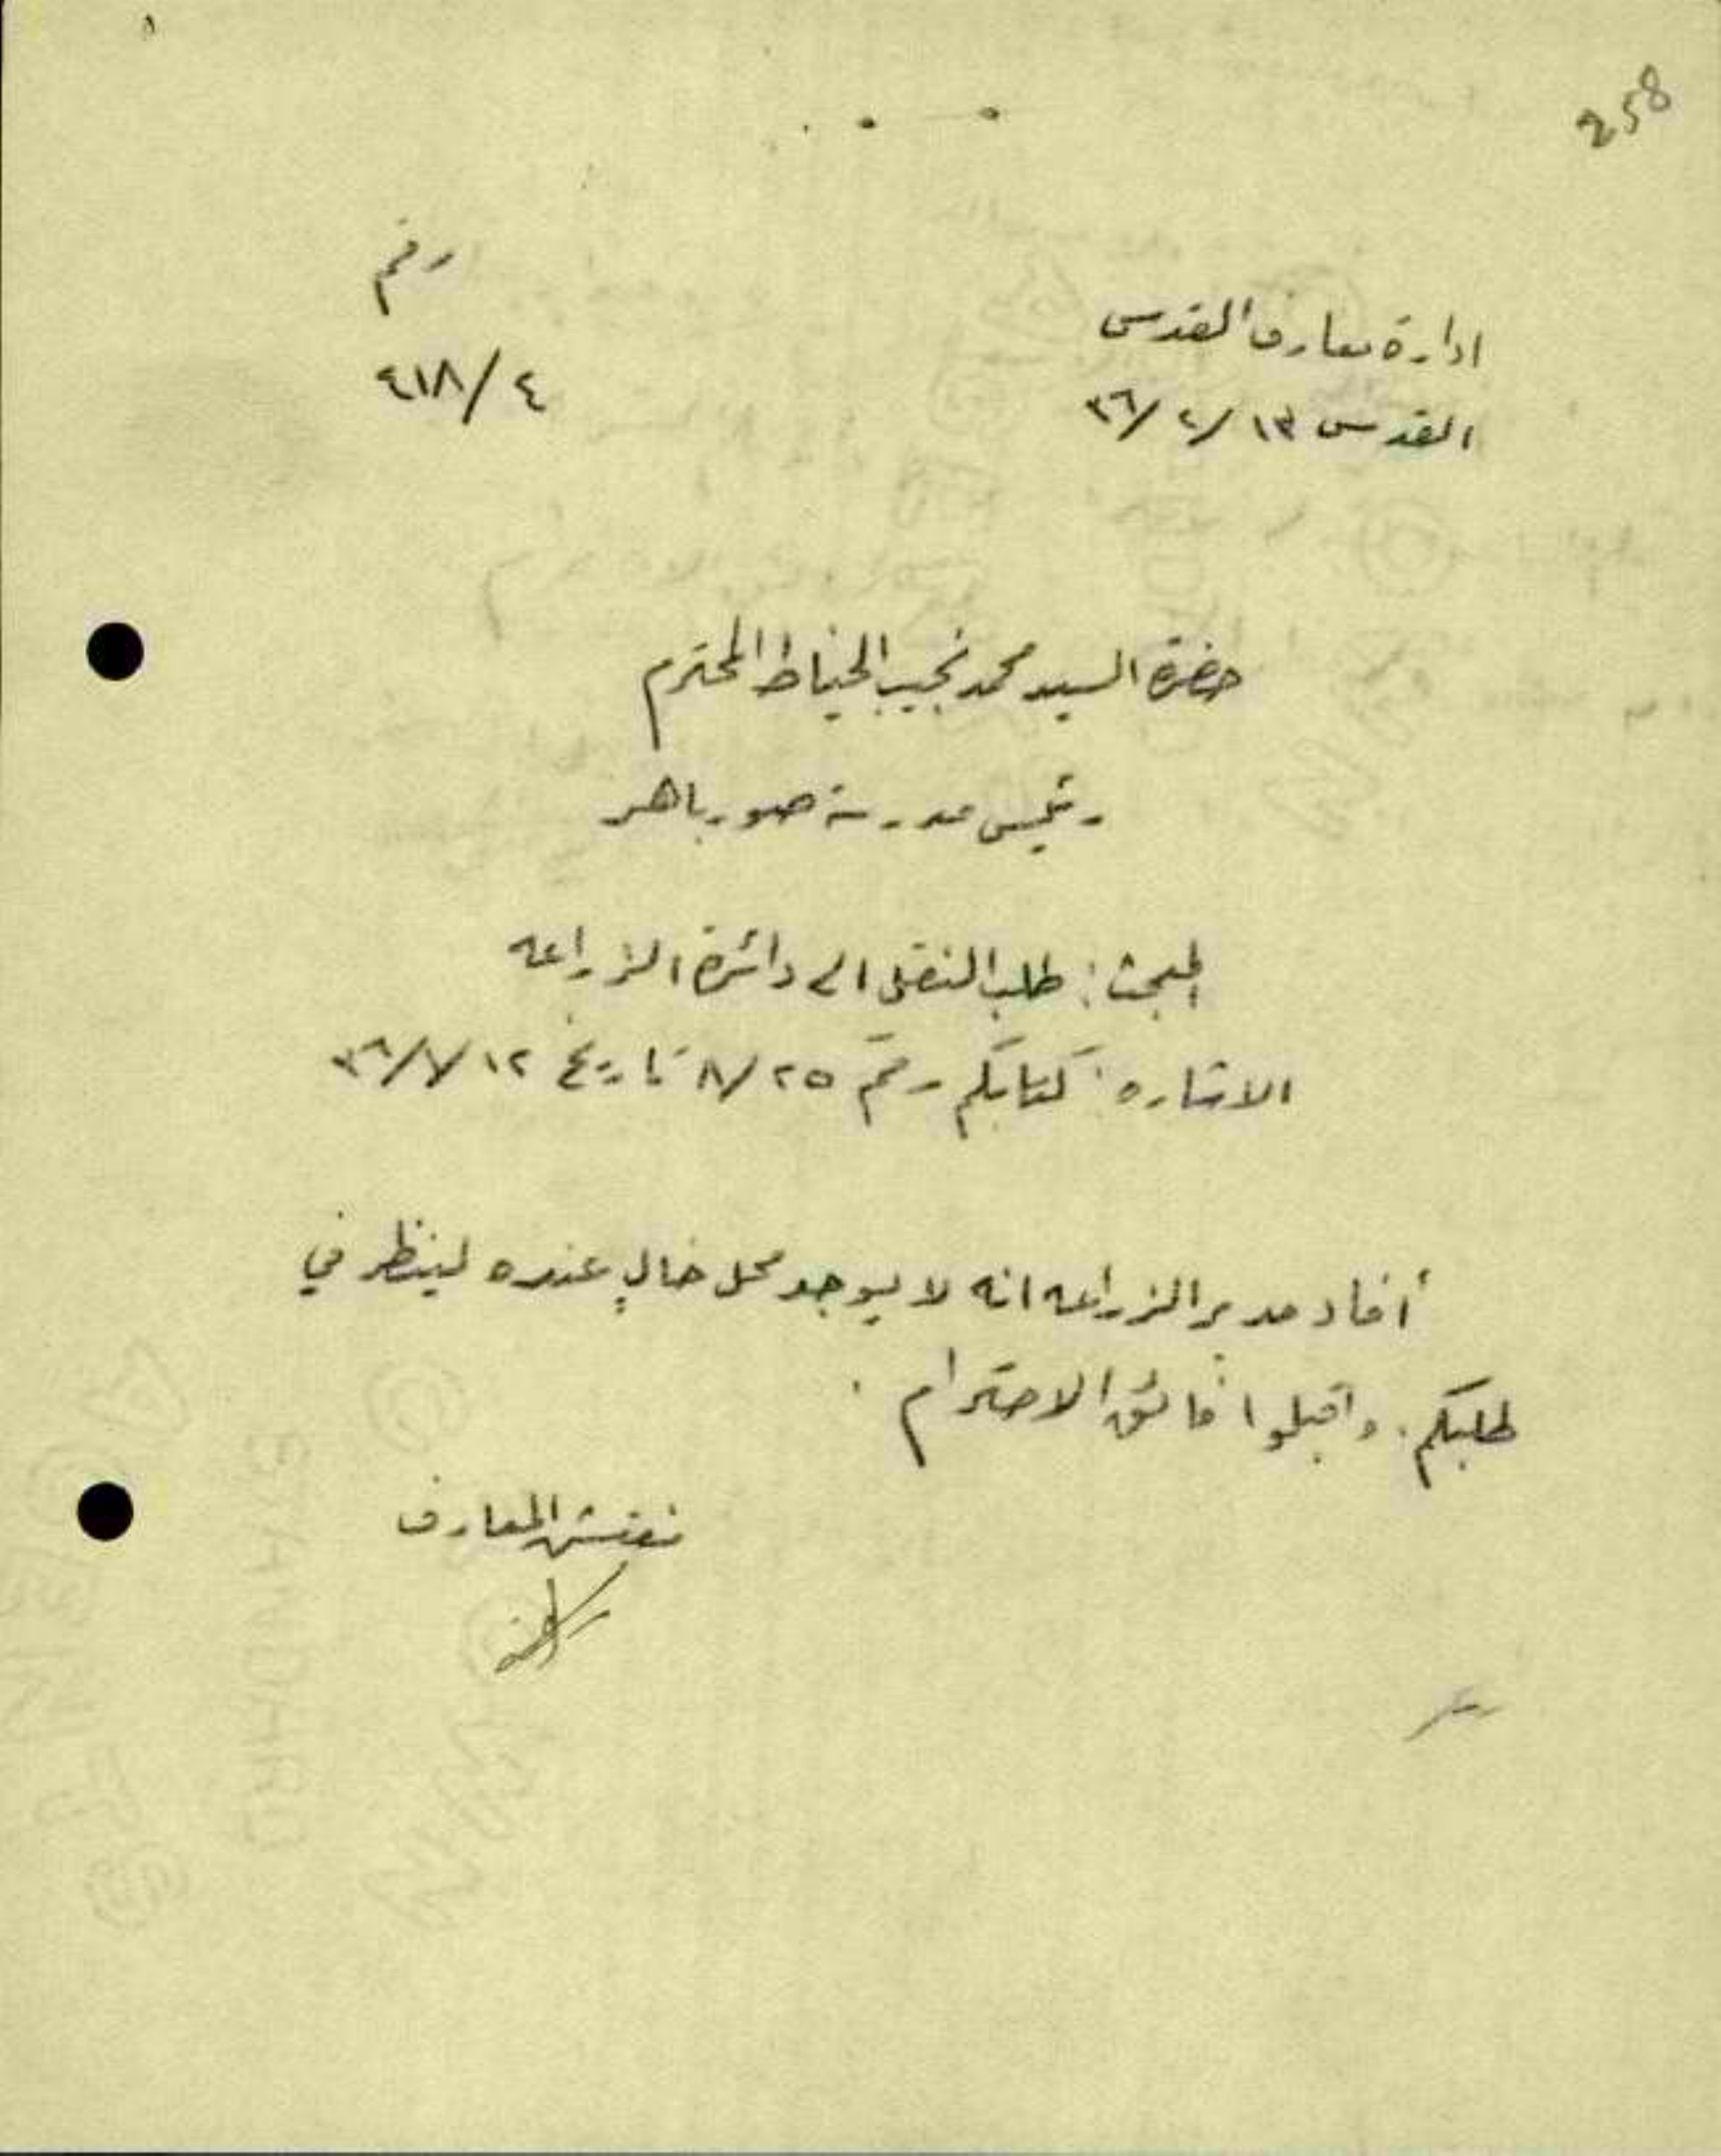 258
رقم
ادارة معارف القدس
٤١٨/٤
القدس ١٣/٢/٣٦
حضرة السيد محمد نجيب الخياط المحترم
رئيس مدرسة صور باهر
المبحث: طلب النقل الى دائرة الزراعه
الاشاره: كتابكم رقم ٨/٢٥ تاريخ ١٢/٧/٣٦
أفاد مدير الزراعه انه لا يوجد محل خالٍ عنده لينظر في
طلبكم. واقبلوا فائق الاحترام.
مفتش المعارف